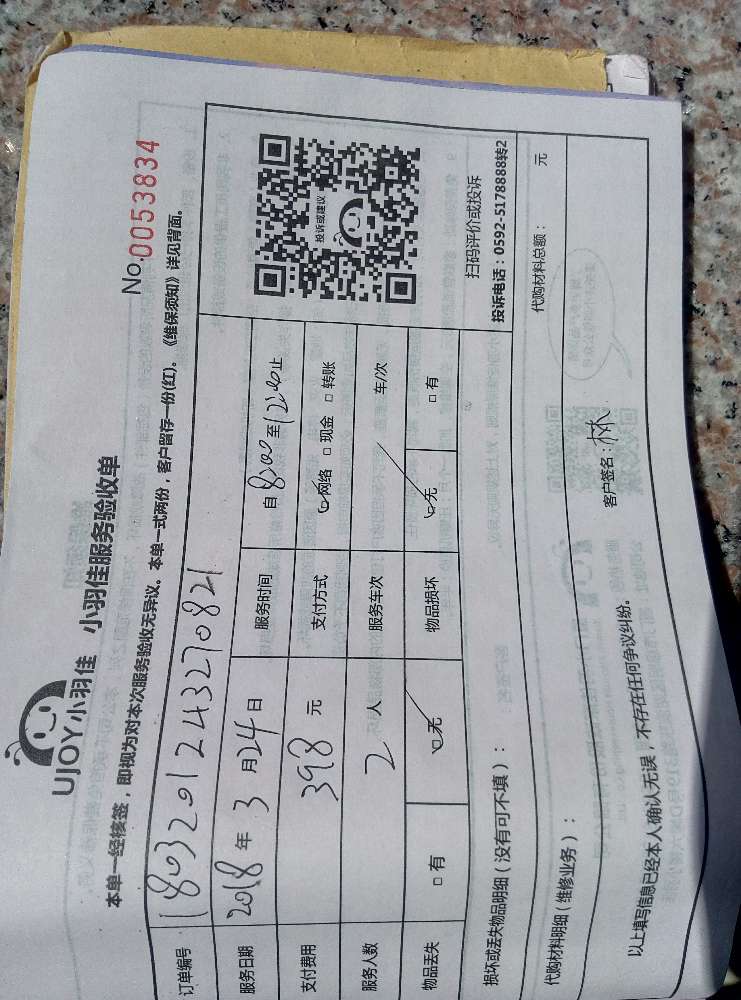 UJOY小羽佳 小羽佳服务验收单
No.0053834
本单一经核签，即视为对本次服务验收无异议。本单一式两份，客户留存一份(红)。《维保须知》详见背面。
订单编号 1803201243270821
服务日期 2018 年 3 月 24 日 服务时间 自 8:00 至 12:00 止
支付费用 398 元 支付方式 ☑网络 □现金 □转账
服务人数 2 人 服务车次 / 车/次
物品丢失 □有 ☑无 物品损坏 ☑无 □有
投诉或建议
扫码评价或投诉
投诉电话：0592-5178888转2
损坏或丢失物品明细（没有可不填）：
代购材料明细（维修业务）： 代购材料总额： 元
以上填写信息已经本人确认无误，不存在任何争议纠纷。 客户签名：林